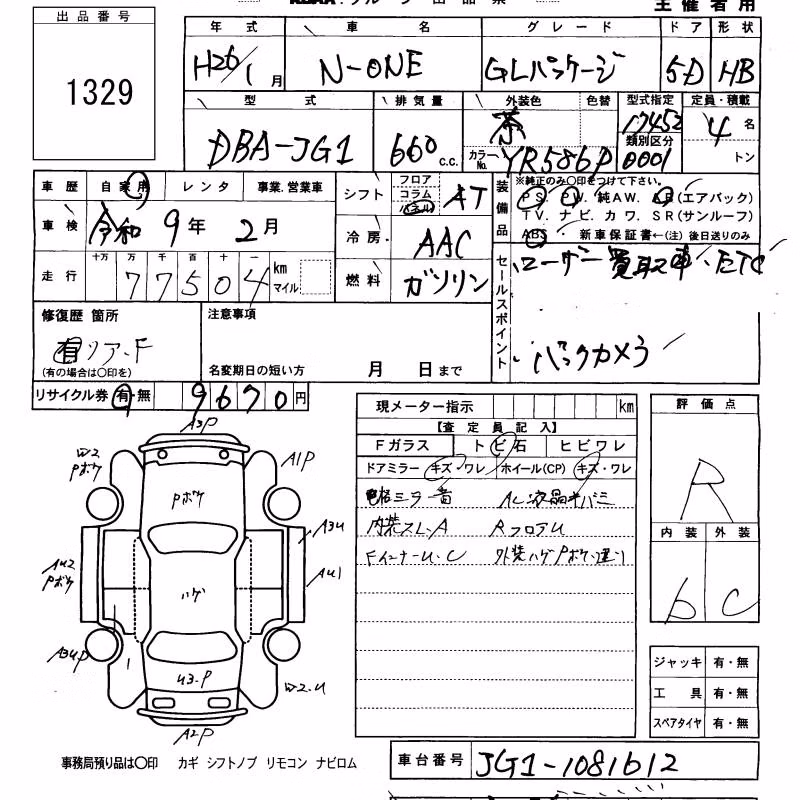 出品番号
1329
主催者用
年式 車名 グレード ドア 形状
H26/1月 N-ONE GLパッケージ 5D HB
型式 排気量 外装色 色替 型式指定 定員・積載
DBA-JG1 660 c.c. 茶 17452 4名
カラーNo. YR586P 類別区分 0001 トン
車歴 自家用 レンタ 事業.営業車
車検 令和9年2月
走行 十万 万 千 百 十 一
77504 km マイル
シフト フロア コラム パネル AT
冷房 AAC
燃料 ガソリン
装備品 ※純正のみ○印をつけて下さい。
PS. PW. 純AW. AB(エアバック)
TV. ナビ. カワ. SR(サンルーフ)
ABS ・ 新車保証書←(注)後日送りのみ
セールスポイント
ユーザー買取車、ETC
バックカメラ
修復歴 箇所 注意事項
有 リア.F
(有の場合は○印を) 名変期日の短い方 月 日まで
リサイクル券 有・無 9670円
現メーター指示 km
【査定員記入】
Fガラス トビ石 ヒビワレ
ドアミラー キズ・ワレ ホイール(CP) キズ・ワレ
格ミラ音 AC液晶キバミ
内装スレ.A RフロアU
FインナーU.C 外装ハゲPボケ.違い
評価点
R
内装 外装
b C
ジャッキ 有・無
工具 有・無
スペアタイヤ 有・無
A3P
W2 Pボケ
A1P
Pボケ
A3U
AU2 Pボケ
AU1
ハゲ
A3UP
U3.P
W2.U
A2P
事務局預り品は○印 カギ シフトノブ リモコン ナビロム
車台番号 JG1-1081612